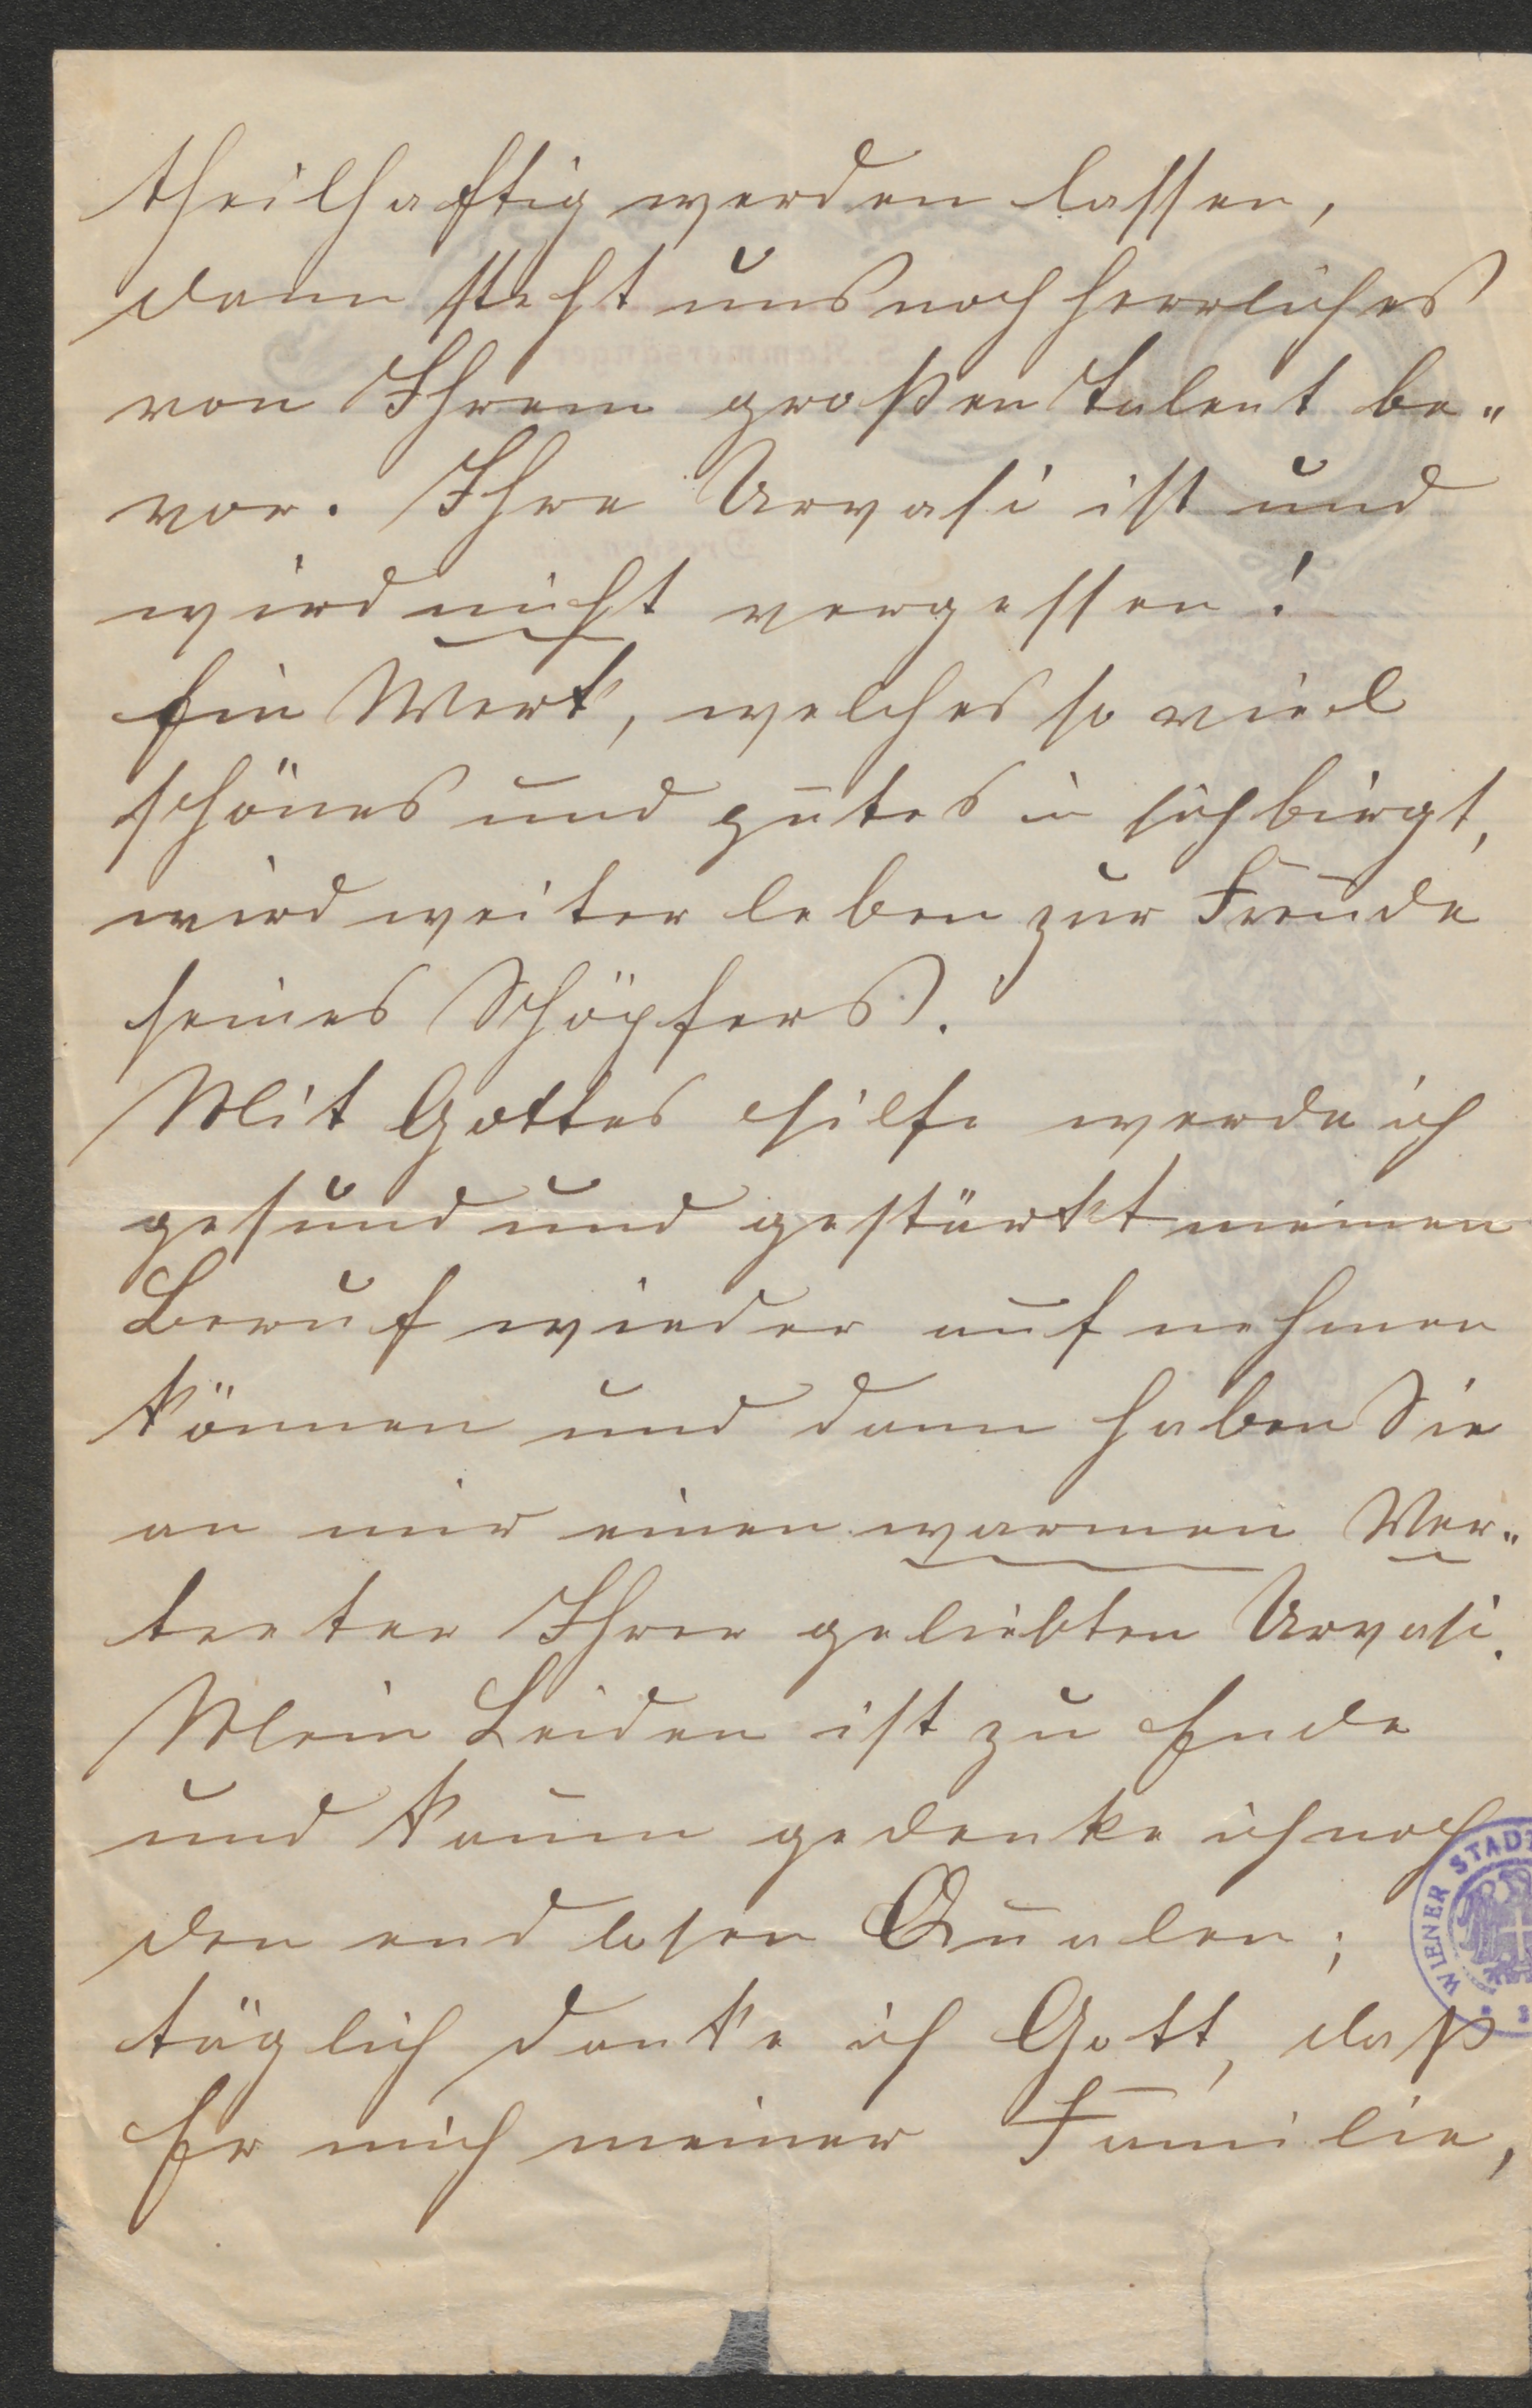 theilhaftig werden lassen,
dann steht uns noch herrliches
von Ihrem großen Talent be„
vor. Ihre Urvasi ist und
wird nicht vergessen!
Ein Werk, welches so viel
schönes und gutes in sich birgt,
wird weiter leben zur Freude
seines Schöpfers.
Mit Gottes Hilfe werde ich
gesund und gestärkt meinen
Beruf wieder aufnehmen
können und dann haben Sie
an mir einen warmen Ver„
treter Ihrer geliebten Urvasi.
Mein Leiden ist zu Ende
und kaum gedenke ich noch
den endlosen Qualen;
täglich danke ich Gott, daß
Er mich meiner Familie,
WIENER STADT